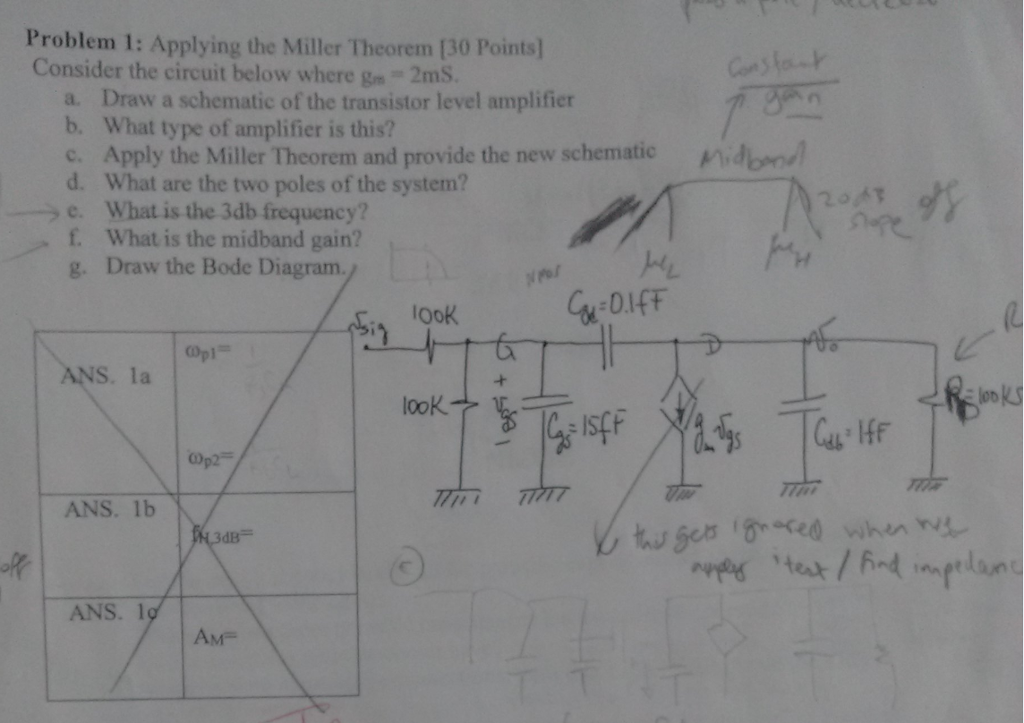 Problem 1: Applying the Miller Theorem [30 Points]
Consider the circuit below where gm = 2mS.
a. Draw a schematic of the transistor level amplifier
b. What type of amplifier is this?
c. Apply the Miller Theorem and provide the new schematic
d. What are the two poles of the system?
e. What is the 3db frequency?
f. What is the midband gain?
g. Draw the Bode Diagram.
Constant
gain
Midband
20dB
slope
off
ANS. 1a
ωp1=
ωp2=
ANS. 1b
fH,3dB=
ANS. 1c
AM=
off
vsig
100K
Cgd=0.1fF
G
D
vo
R
100K
+
vgs
-
Cgs=15fF
gm vgs
Cdb=1fF
RD=100K
this gets ignored when we
apply itest / find impedance
c